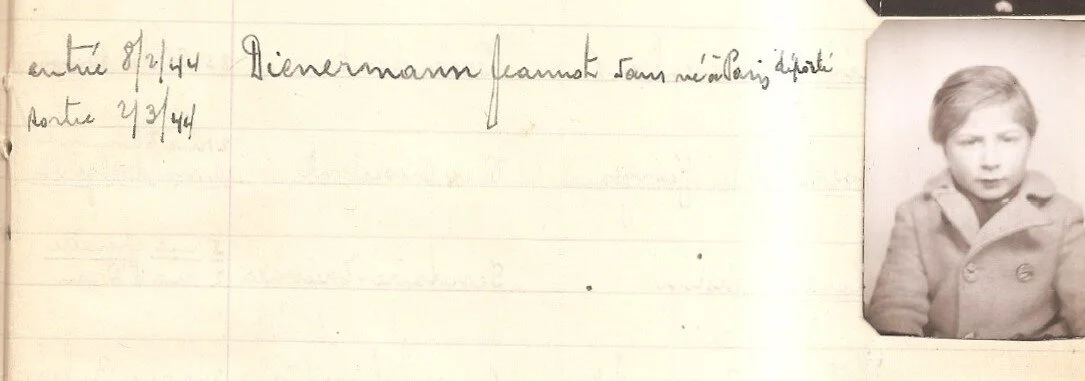 entrée 8/2/44 Dienermann Jeannot 5 ans né à Paris déporté
sortie 2/3/44